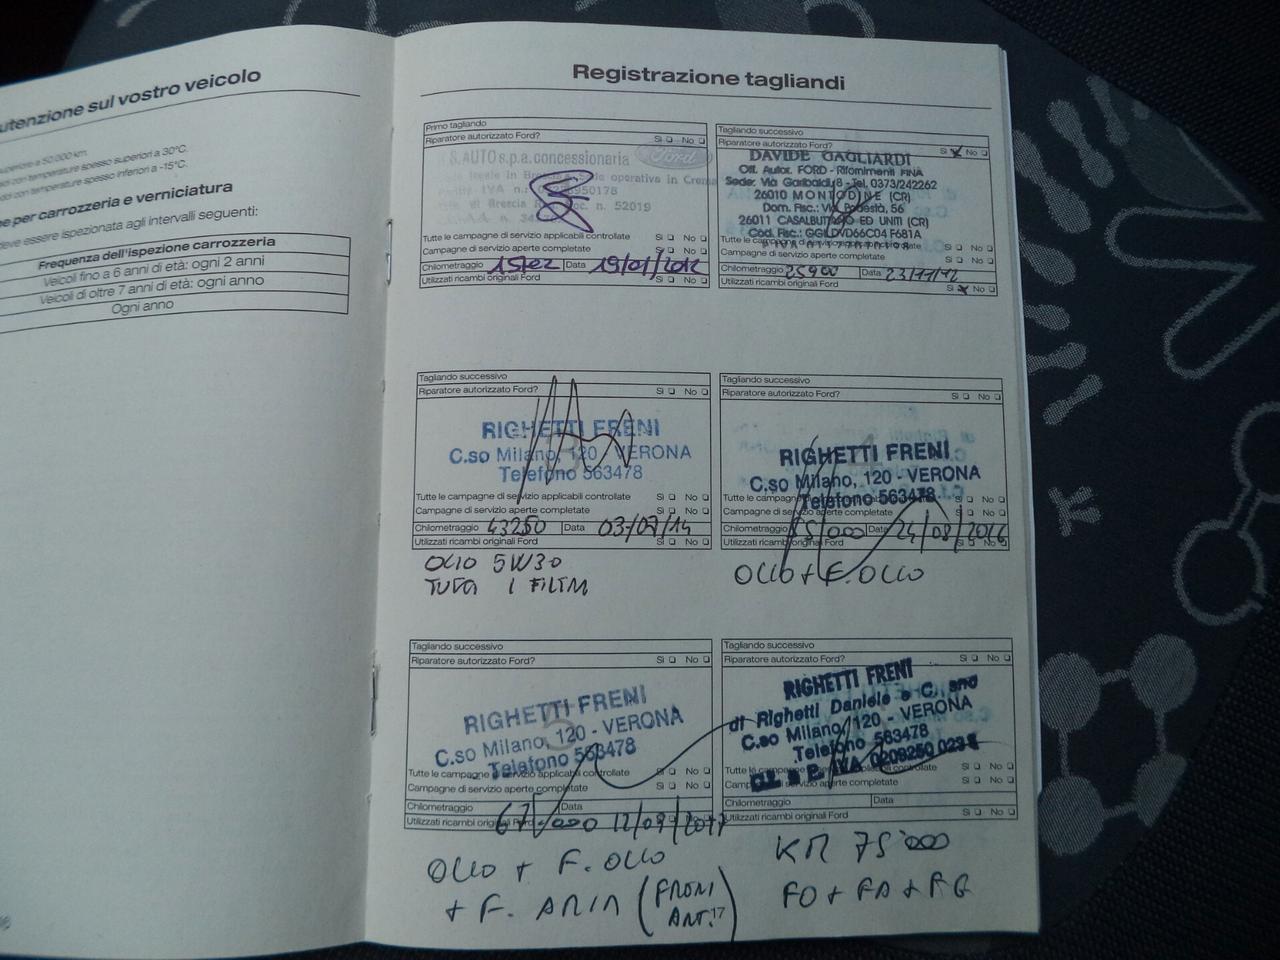 utenzione sul vostro veicolo
superiore a 50.000 km.
con temperature spesso superiori a 30°C.
con temperature spesso inferiori a -15°C.
ne per carrozzeria e verniciatura
deve essere ispezionata agli intervalli seguenti:
Frequenza dell'ispezione carrozzeria
Veicoli fino a 6 anni di età: ogni 2 anni
Veicoli di oltre 7 anni di età: ogni anno
Ogni anno
Registrazione tagliandi
Primo tagliando
Riparatore autorizzato Ford? Sì No
S.AUTO s.p.a. concessionaria Ford
operativa in Crema
Tutte le campagne di servizio applicabili controllate Sì No
Campagne di servizio aperte completate Sì No
Chilometraggio Data 19/01/2012
Utilizzati ricambi originali Ford Sì No
Tagliando successivo
Riparatore autorizzato Ford? Sì No
DAVIDE GAGLIARDI
Off. Autor. FORD - Rifornimenti FINA
Sede: Via Garibaldi, 8 - Tel. 0373/242262
26010 MONTODINE (CR)
Dom. Fisc.: Via Podestà, 56
26011 CASALBUTTANO ED UNITI (CR)
Cod. Fisc.: GGLDVD66C04F681A
Campagne di servizio aperte completate Sì No
Chilometraggio 25900 Data 23/11/12
Utilizzati ricambi originali Ford Sì No
Tagliando successivo
Riparatore autorizzato Ford? Sì No
RIGHETTI FRENI
C.so Milano, 120 - VERONA
Telefono 563478
Tutte le campagne di servizio applicabili controllate Sì No
Campagne di servizio aperte completate Sì No
Chilometraggio 43250 Data 03/07/14
Utilizzati ricambi originali Ford Sì No
OLIO 5W30
TUTTI I FILTRI
Tagliando successivo
Riparatore autorizzato Ford? Sì No
RIGHETTI FRENI
C.so Milano, 120 - VERONA
Telefono 563478
Tutte le campagne Sì No
Campagne di servizio aperte completate Sì No
Chilometraggio Data 24/08/2016
Utilizzati ricambi originali Ford Sì No
OLIO + F. OLIO
Tagliando successivo
Riparatore autorizzato Ford? Sì No
RIGHETTI FRENI
C.so Milano, 120 - VERONA
Telefono 563478
Tutte le campagne di servizio applicabili controllate Sì No
Campagne di servizio aperte completate Sì No
Chilometraggio Data
Utilizzati ricambi originali Ford 67.000 12/09/2017
OLIO + F. OLIO
+ F. ARIA (FRENI
ANT.)
Tagliando successivo
Riparatore autorizzato Ford? Sì No
RIGHETTI FRENI
di Righetti Daniele e C. snc
C.so Milano, 120 - VERONA
Telefono 563478
Sì No
Campagne Sì No
Chilometraggio Data
Utilizzati ricambi originali Ford Sì No
KM 75'000
FO + FA +
17